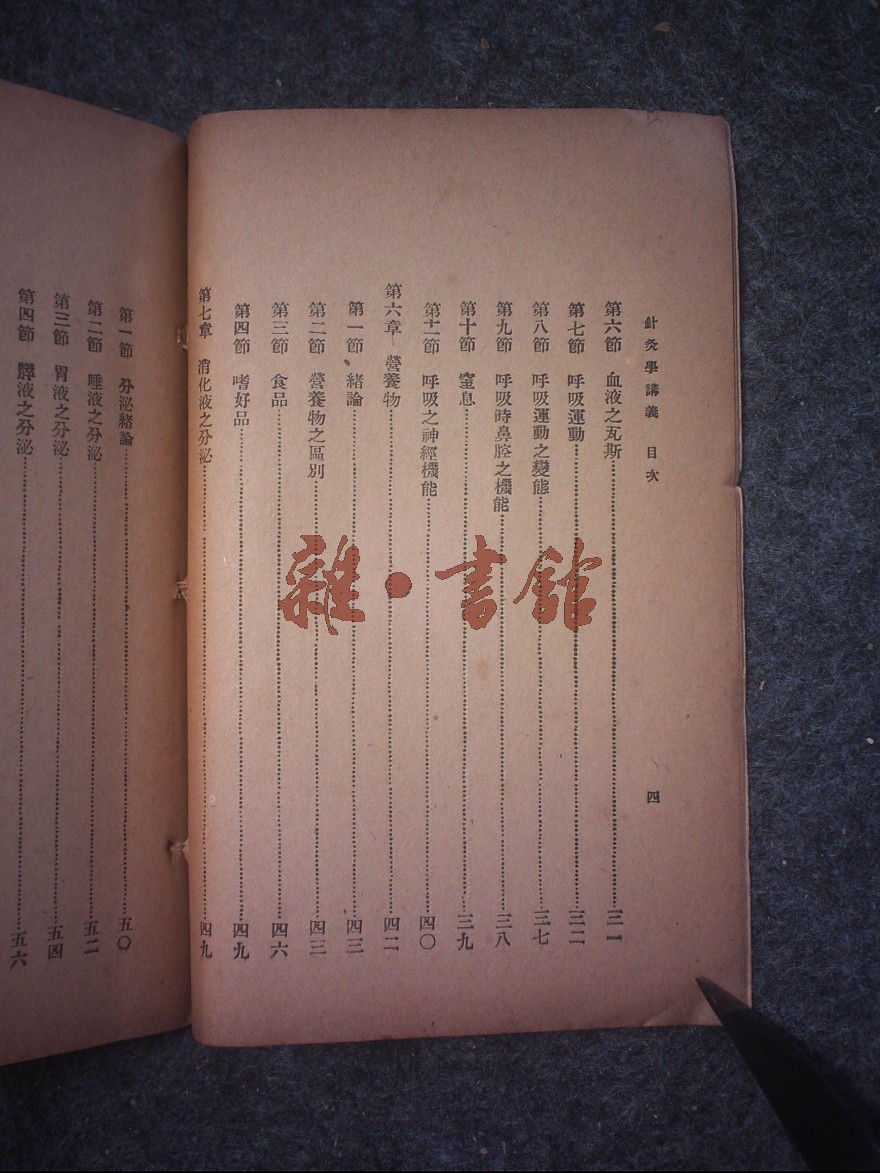 針灸學講義 目次 四
第六節 血液之瓦斯 三一
第七節 呼吸運動 三二
第八節 呼吸運動之變態 三七
第九節 呼吸時鼻腔之機能 三八
第十節 窒息 三九
第十一節 呼吸之神經機能 四〇
第六章 營養物 四二
第一節 緒論 四三
第二節 營養物之區別 四三
第三節 食品 四六
第四節 嗜好品 四九
第七章 消化液之分泌 四九
第一節 分泌緒論 五〇
第二節 唾液之分泌 五二
第三節 胃液之分泌 五四
第四節 膵液之分泌 五六
雜·書館